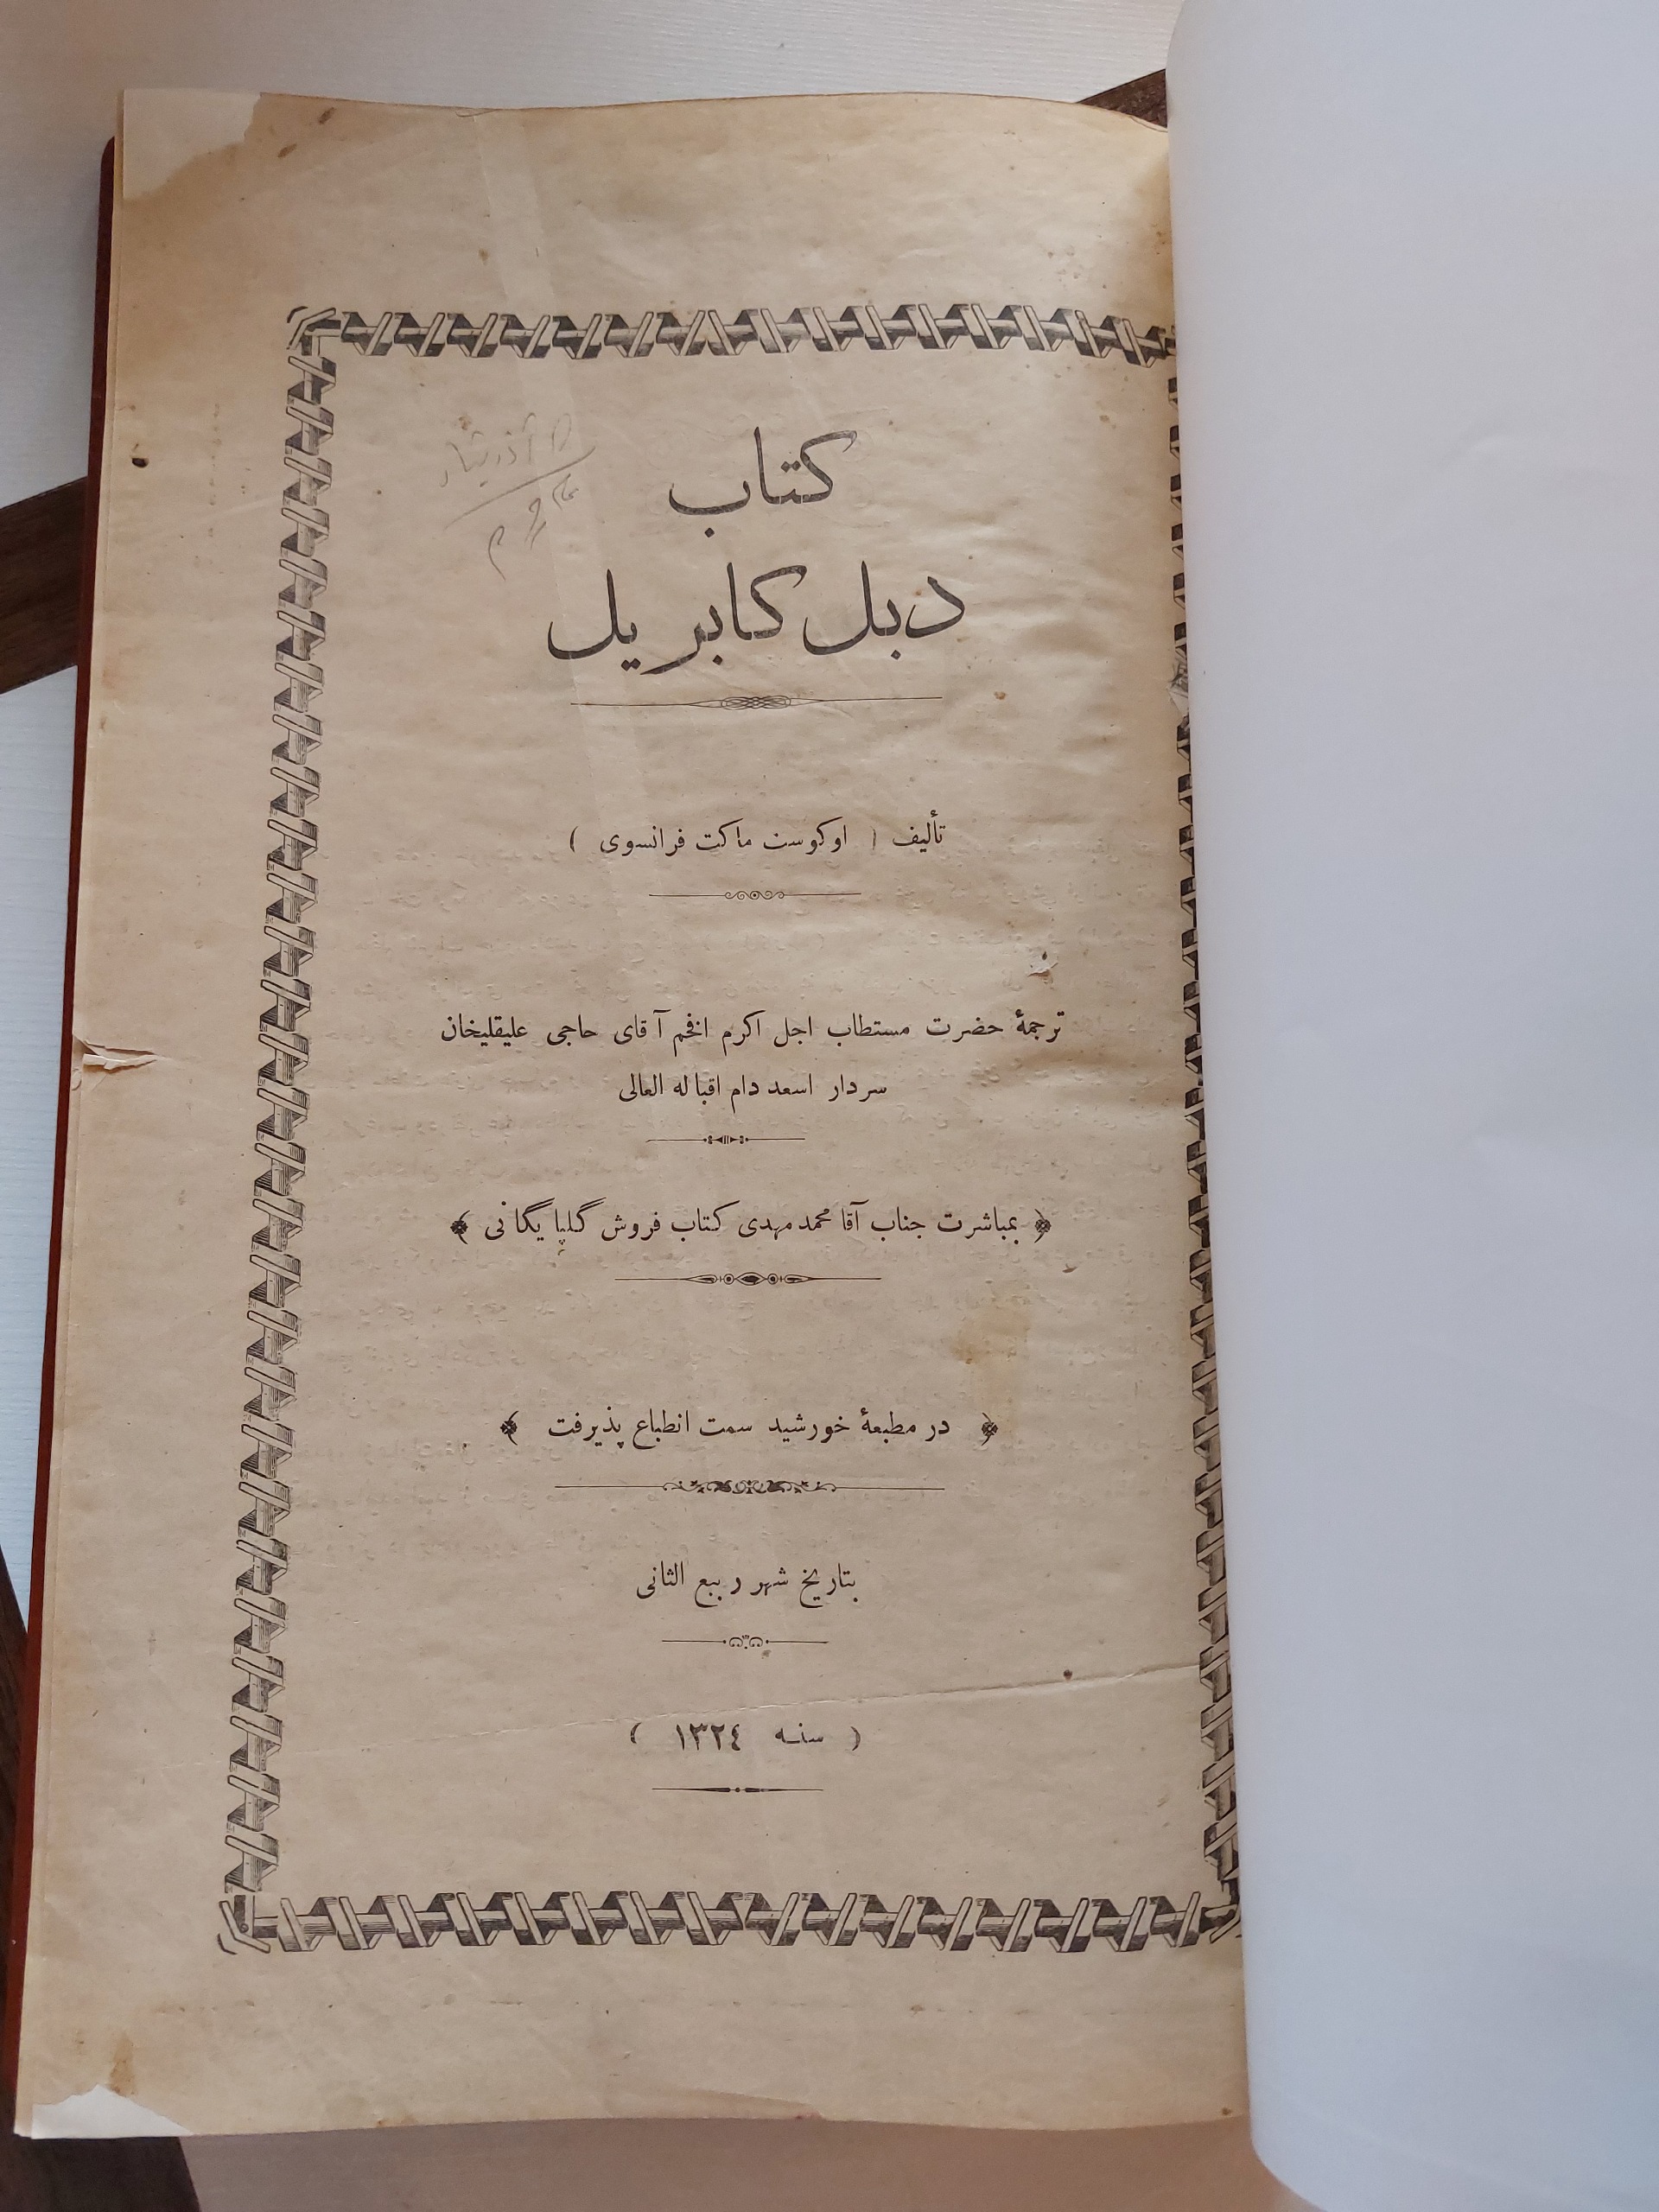 کتاب
دبل کابریل
تألیف ( اوکوست ماکت فرانسوی )
ترجمهٔ حضرت مستطاب اجل اکرم افخم آقای حاجی علیقلیخان
سردار اسعد دام اقباله العالی
﴿ بمباشرت جناب آقا محمد مهدی کتاب فروش گلپایگانی ﴾
﴿ در مطبعهٔ خورشید سمت انطباع پذیرفت ﴾
بتاریخ شهر ربیع الثانی
( سنه ١٣٢٤ )